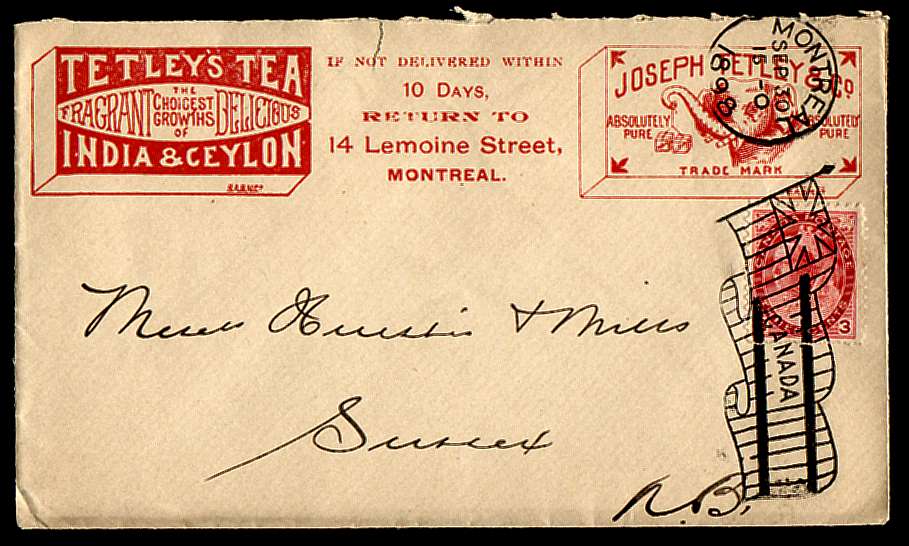 TETLEY'S TEA
THE
FRAGRANT CHOICEST DELICIOUS
GROWTHS
OF
INDIA & CEYLON
IF NOT DELIVERED WITHIN
10 DAYS,
RETURN TO
14 Lemoine Street,
MONTREAL.
JOSEPH TETLEY & Co
ABSOLUTELY PURE
ABSOLUTELY PURE
TRADE MARK
MONTREAL
SEP 30
15-0
1898
POSTAGE
3
CANADA
Messrs & Mills
Sussex
N.B.